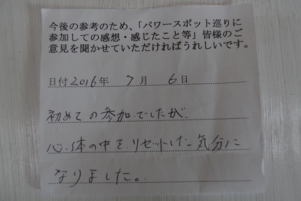 今後の参考のため、「パワースポット巡りに
参加しての感想・感じたこと等」皆様のご
意見を聞かせていただければうれしいです。
日付2016年 7月 6日
初めての参加でしたが
心、体の中をリセットした気分に
なりました。